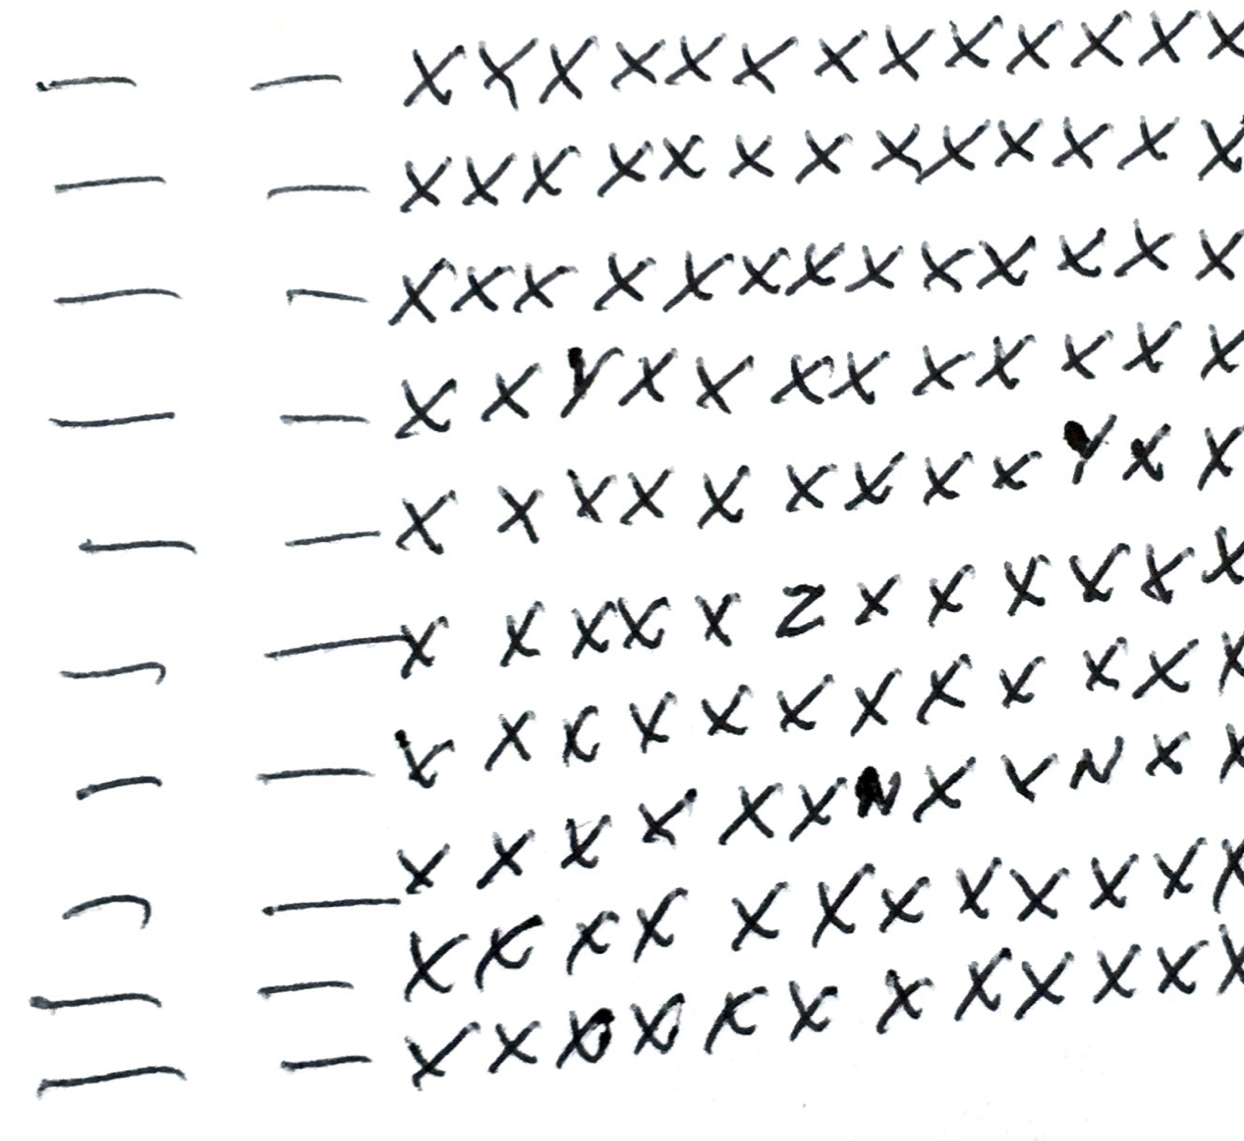 — — X Y X X X X X X X X X X X
— — X X X X X X X X X X X X X
— — X X X X X X X X X X X X X
— — X X Y X X X X X X X X X
— — X X X X X X X X X Y X X
— — X X X X X Z X X X X X X
— — X X X X X X X X X X X X
— — X X X X X X N X Y N X X
— — X X X X X X X X X X X X
— — X X X X X X X X X X X X